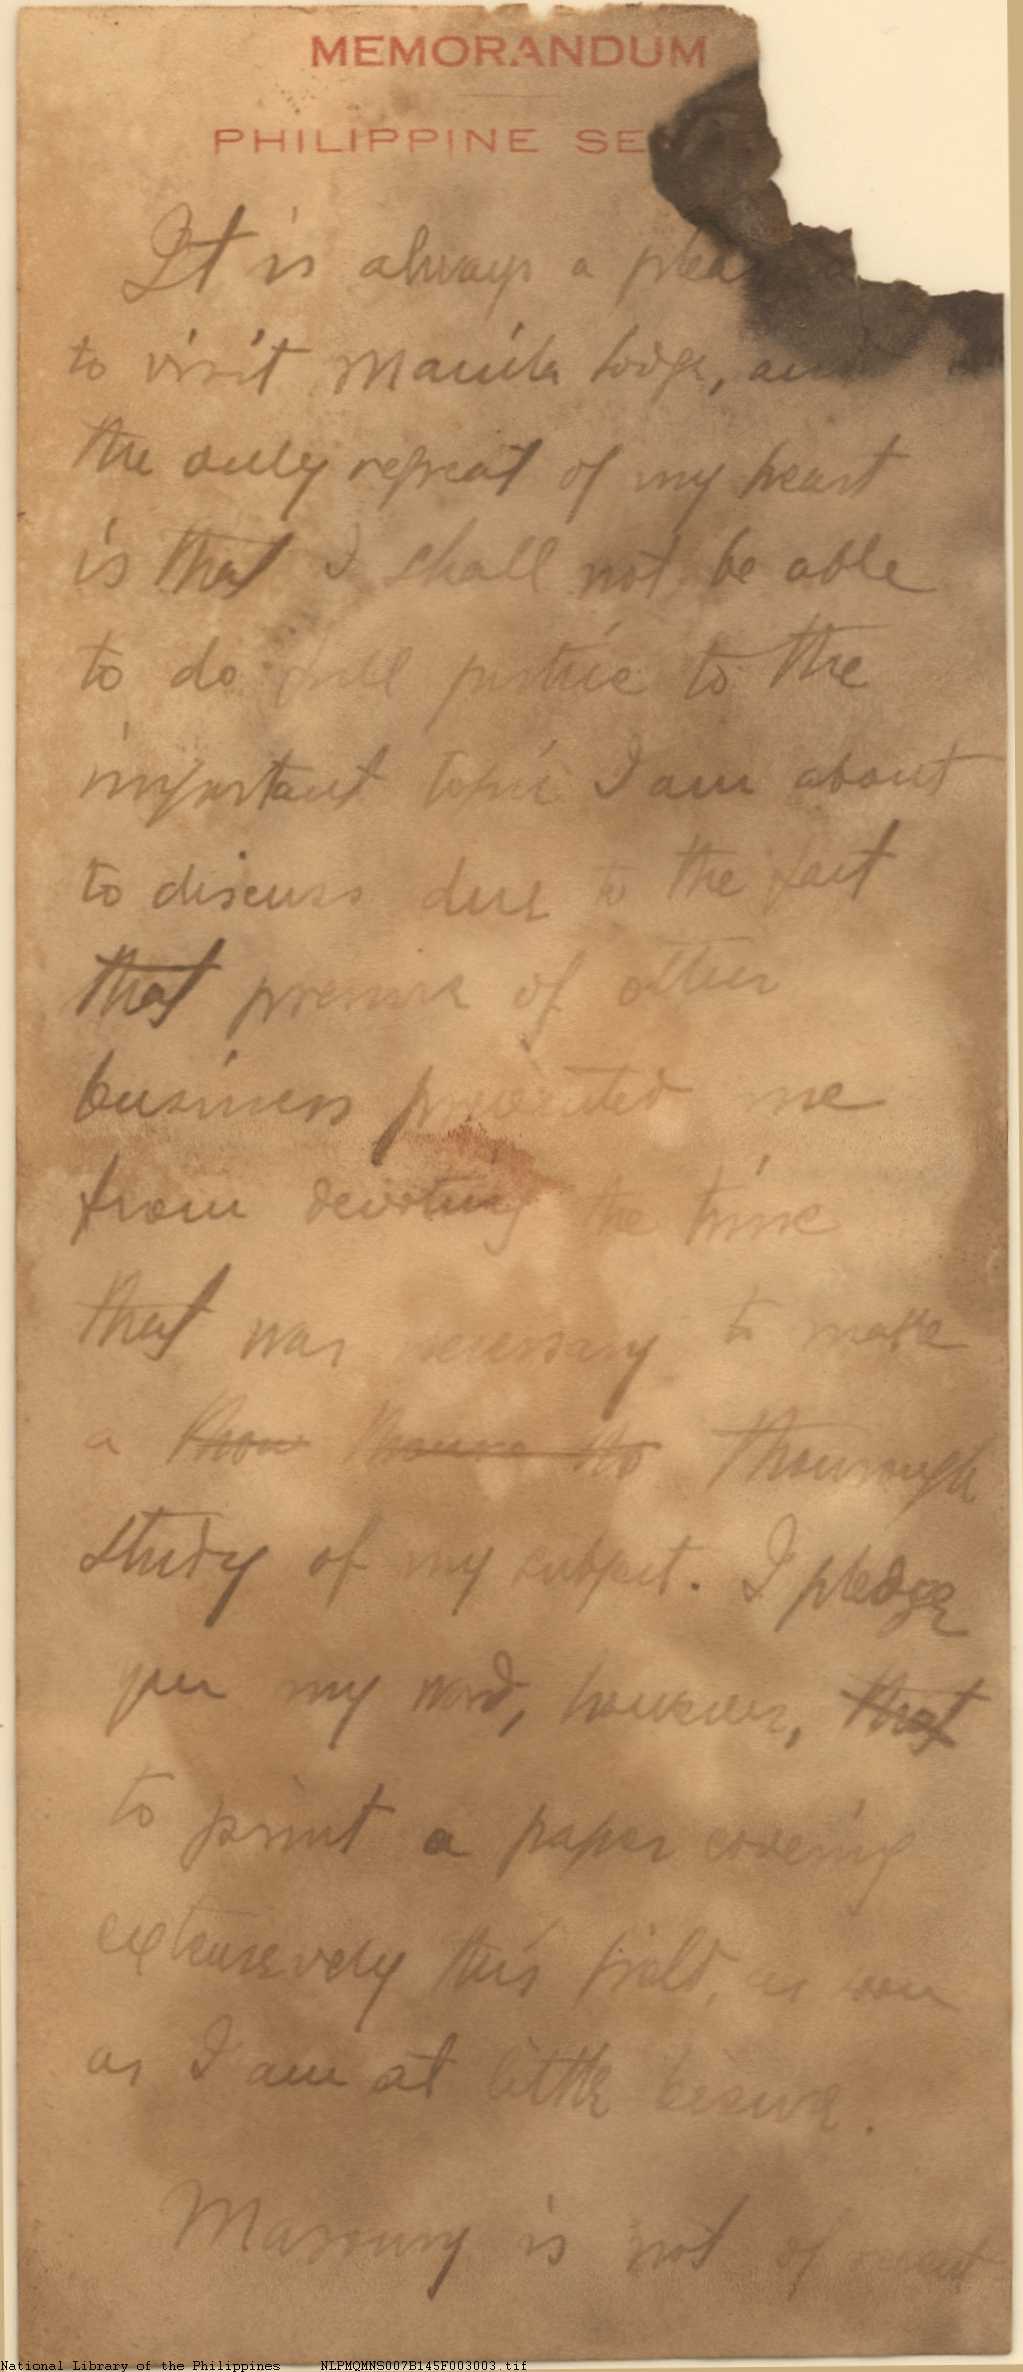 MEMORANDUM
PHILIPPINE SE
It is always a pleas
to visit Manila Lodge, and
the only regreat of my heart
is that I shall not be able
to do full justice to the
important topic I am about
to discuss due to the fact
that pressure of other
business prevented me
from devoting the time
that was necessary to make
a thorough
study of my subject. I pledge
you my word, however, that
to print a paper covering
extensevely this field, as soon
as I am at little leisure.
Masonry is not of recent
National Library of the Philippines NLPMQMNS007B145F003003.tif